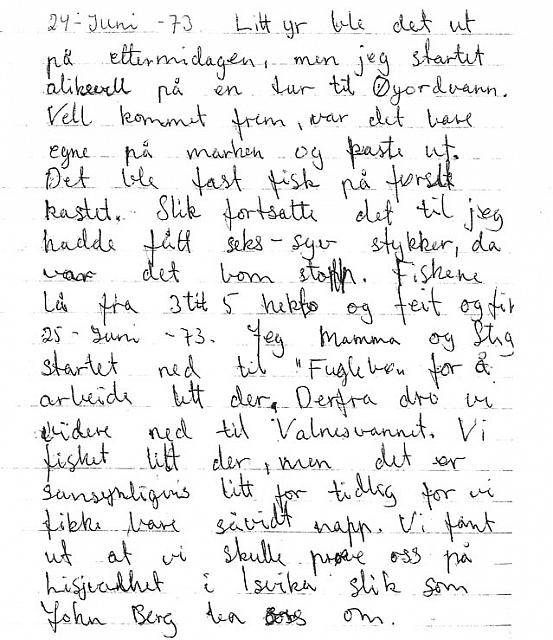 24-Juni -73. Litt yr ble det ut
på ettermidagen, men jeg startet
alikevell på en tur til Øyordvann.
Vell kommet frem, var det bare
egne på marken og kaste ut.
Det ble fast fisk på første
kastet. Slik fortsatte det til jeg
hadde fått seks-syv stykker, da
var det bom stopp. Fiskene
lå fra 3 til 5 hekto og feit og fin
25-Juni -73. Jeg Mamma og Stig
startet ned til "Fuglebu" for å
arbeide litt der. Derfra dro vi
videre ned til Valnesvannet. Vi
fisket litt der, men det er
sansynligvis litt for tidlig for vi
fikk bare såvidt napp. Vi fant
ut at vi skulle prøve oss på
i Isvika slik som
John Berg om.